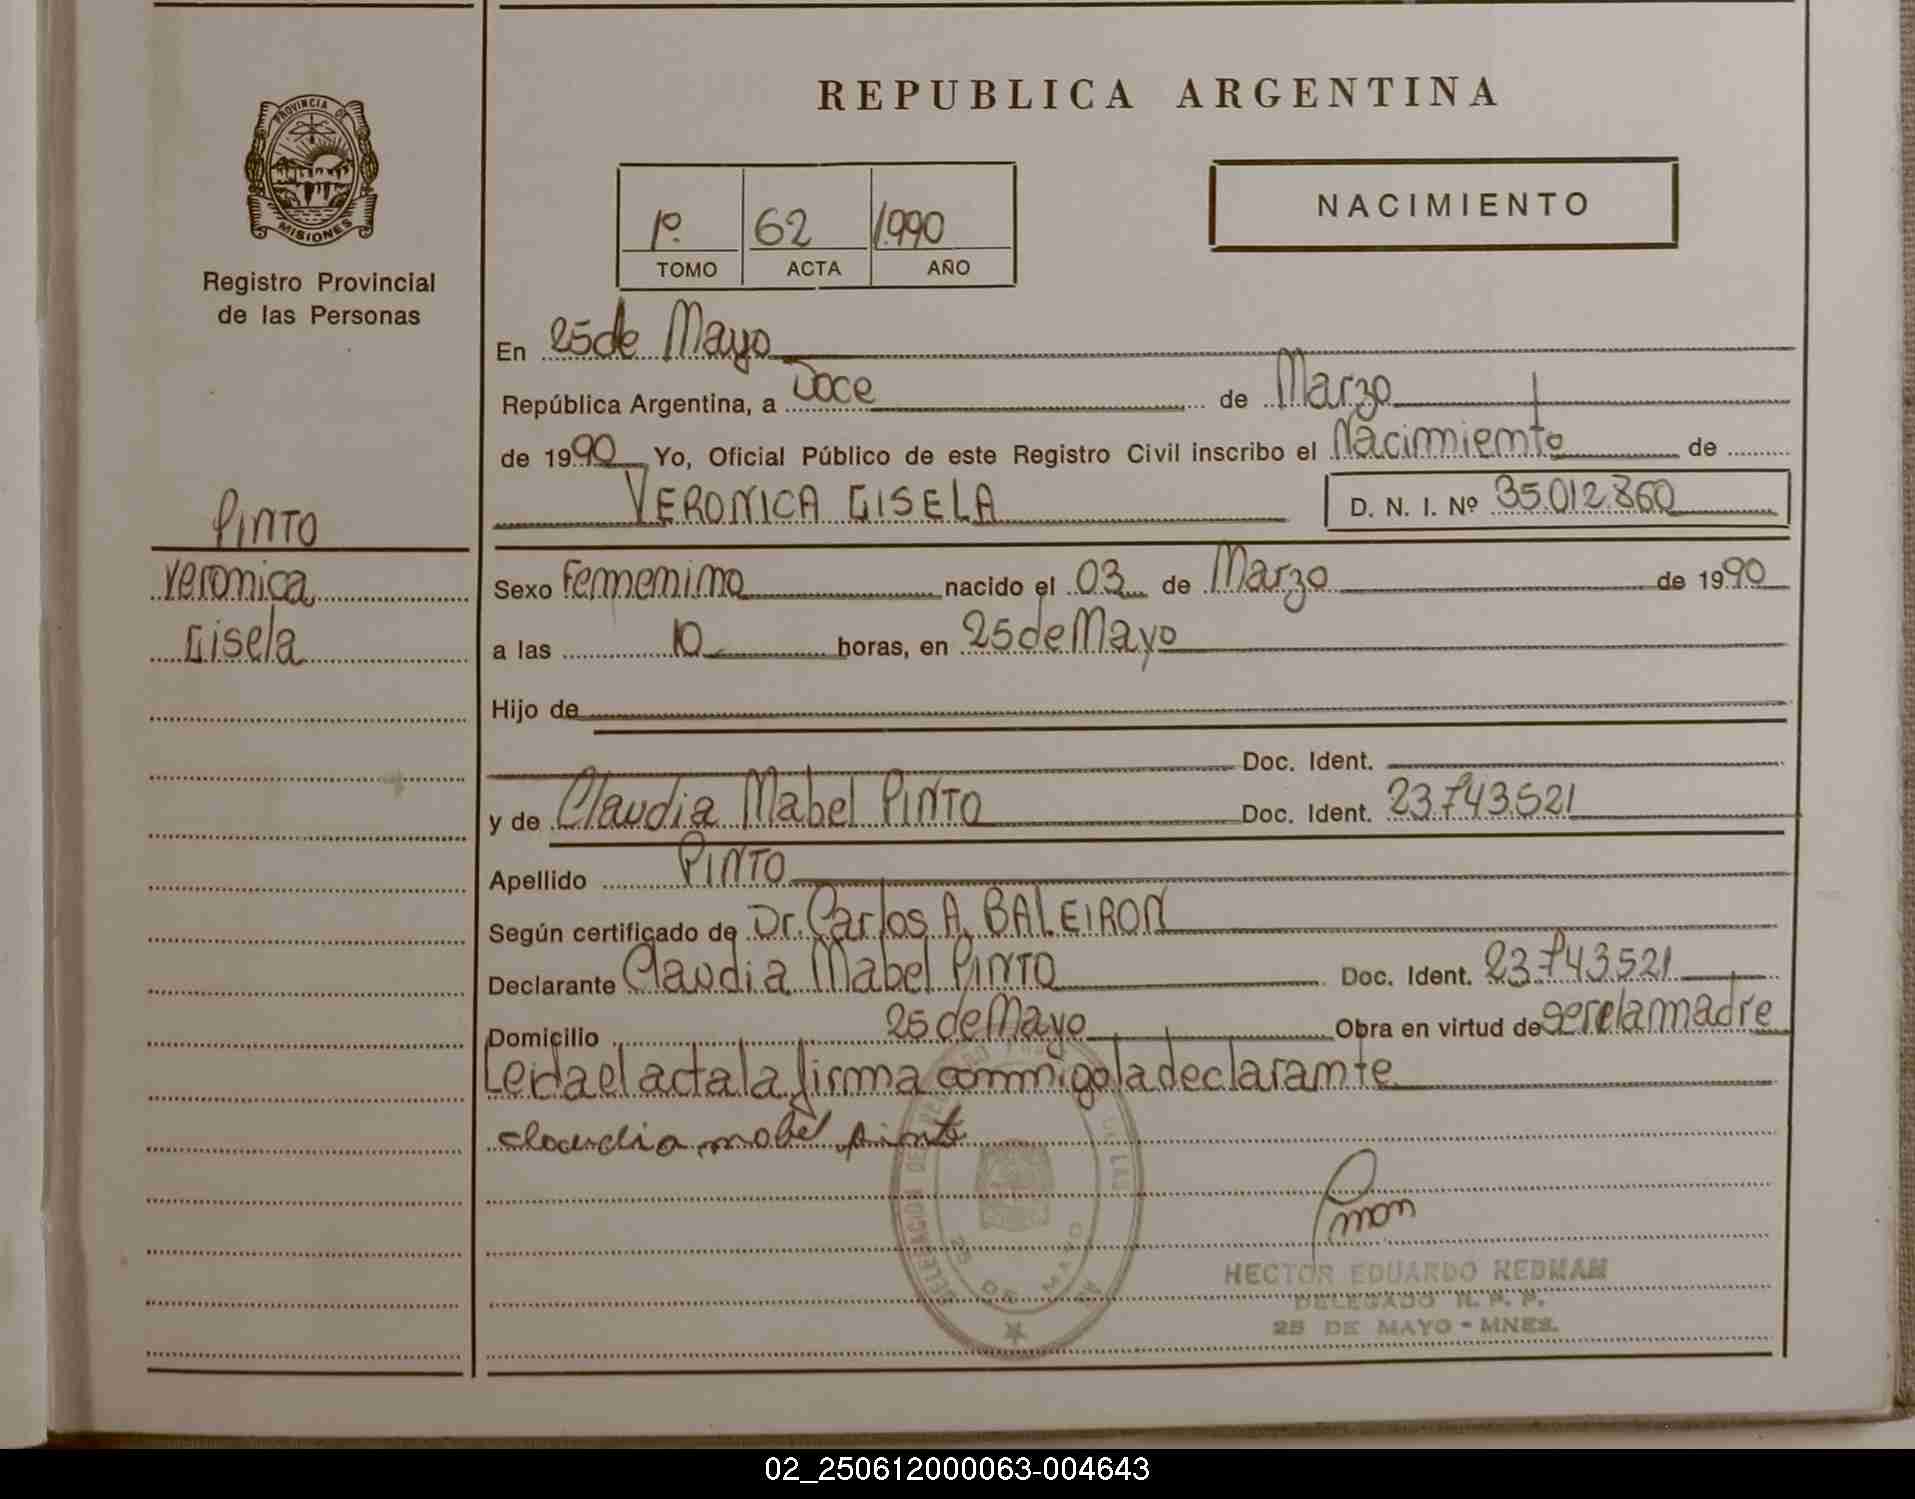 REPUBLICA ARGENTINA
PROVINCIA DE
MISIONES
Registro Provincial
de las Personas
1º. 62 1.990
TOMO ACTA AÑO
NACIMIENTO
En 25 de Mayo
República Argentina, a Doce de Marzo
de 1990 Yo, Oficial Público de este Registro Civil inscribo el Nacimiento de
VERONICA GISELA D. N. I. Nº 35.012.860
PINTO
Veronica
Gisela
Sexo Femenino nacido el 03 de Marzo de 1990
a las 10 horas, en 25 de Mayo
Hijo de
Doc. Ident.
y de Claudia Mabel PINTO Doc. Ident. 23.743.521
Apellido PINTO
Según certificado de Dr. Carlos A. BALEIRON
Declarante Claudia Mabel PINTO Doc. Ident. 23.743.521
Domicilio 25 de Mayo Obra en virtud de ser la madre
Leida el acta la firma conmigo la declarante
claudia mabel pinto
DELEGACION DE
25 DE MAYO
HECTOR EDUARDO REDMAN
DELEGADO R. P. P.
25 DE MAYO - MNES.
02_250612000063-004643